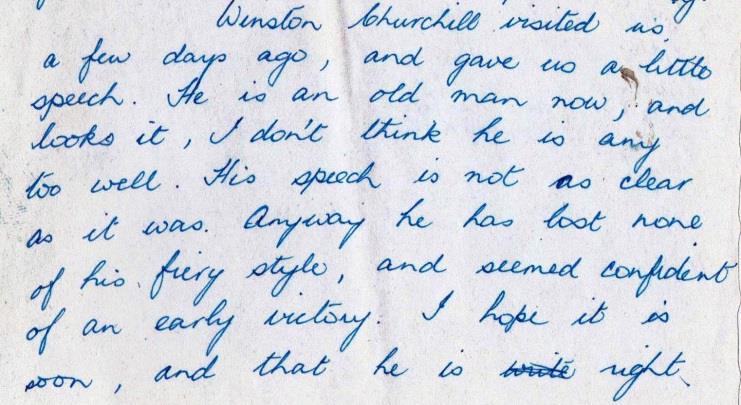 Winston Churchill visited us,
a few days ago, and gave us a little
speech. He is an old man now, and
looks it, I don't think he is any
too well. His speech is not as clear
as it was. Anyway he has lost none
of his fiery style, and seemed confident
of an early victory. I hope it is
soon, and that he is write right.